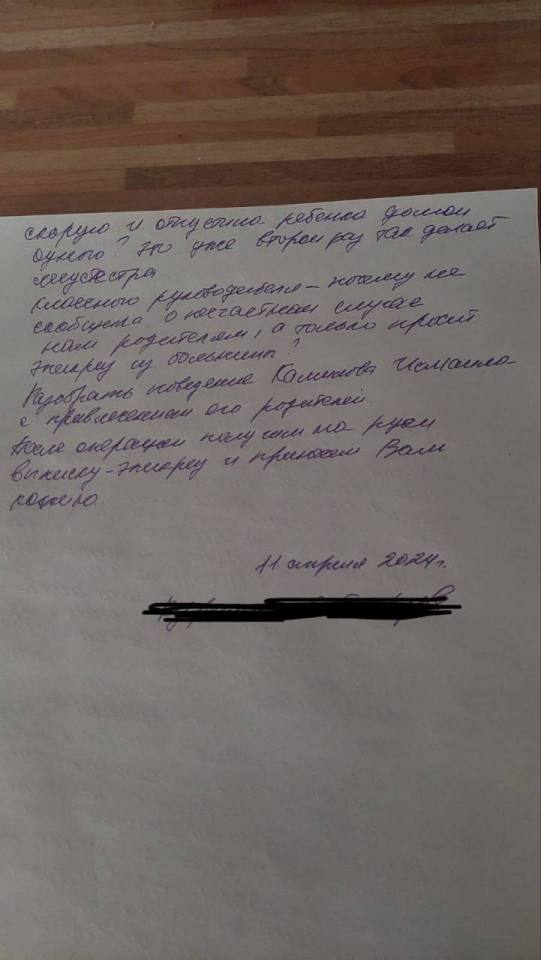 скорую и отпустила ребенка домой
одного? Это уже второй раз так делает
медсестра
классного руководителя – почему не
сообщила о несчастном случае
нам родителям, а только просит
эпикриз из больницы?
Разобрать поведение Калинова Исмаила
с привлечением его родителей.
После операции получим на руки
выписку-эпикриз и принесем Вам
копию.
11 апреля 2024г.